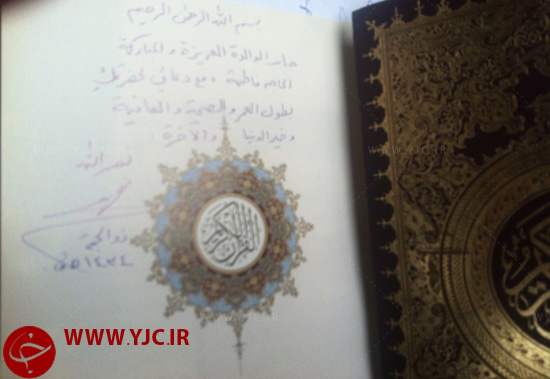 بسم الله الرحمن الرحيم
الوالدة العزيزة والمباركة
الحاجة فاطمة ، مع دعائي لحضرتك
بطول العمر والصحة والعافية
وخير الدنيا والآخرة .
نصر الله
ذو الحجة
١٤٣٤ هـ
القرآن الكريم
WWW.YJC.IR